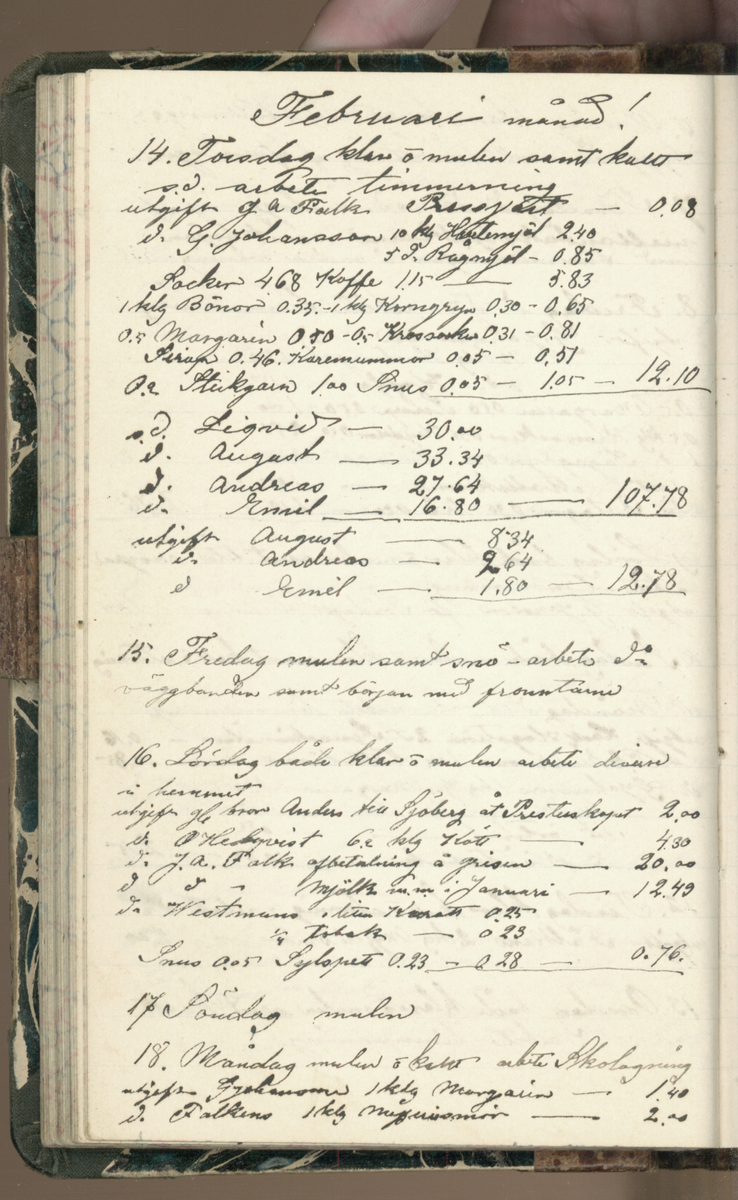 Februari månad!
14. Torsdag klar o mulen samt kallt
s.d. arbete timmerning
utgift J A Falk Pressjäst — 0.08
d. G. Johansson 10 klg Hvetemjöl 2.40
5 d. Rågmjöl - 0.85
Socker 468 Kaffe 1.15 — 5.83
1 klg Bönor 0.35. - 1 klg Korngryn 0.30 - 0.65
0.5 Margarin 0.50 - 0.5 0.31 - 0.81
Sirap 0.46. Karemummor 0.05 — 0.51
0.2 Stickgarn 1.00 Snus 0.05 - 1.05 - 12.10
s.d. Liqvid — 30.00
d. August — 33.34
d. Andreas — 27.64
d. Emil — 16.80 — 107.78
utgift August — 8.34
d. Andreas — 2.64
d Emil — 1.80 — 12.78
15. Fredag mulen samt snö - arbete då
väggbanden samt början med
16. Lördag både klar o mulen arbete diverse
i hemmet
utgift gl. bror Anders till Sjöberg åt Presteskapet 2.00
d. O Hedqvist 6.2 klg Kött — 4.30
d. J. A. Falk afbetalning å grisen — 20.00
d d " Mjölk m.m i Januari — 12.49
d. Westmans 1 liten 0.25
¼ Tobak — 0 23
Snus 0.05 Sylspets 0.23 - 0.28 — 0.76.
17 Söndag mulen
18. Måndag mulen o kallt arbete Skolagning
utgift G Johansson 1 klg Margarin — 1.40
d. Falkens 1 klg — 2.00